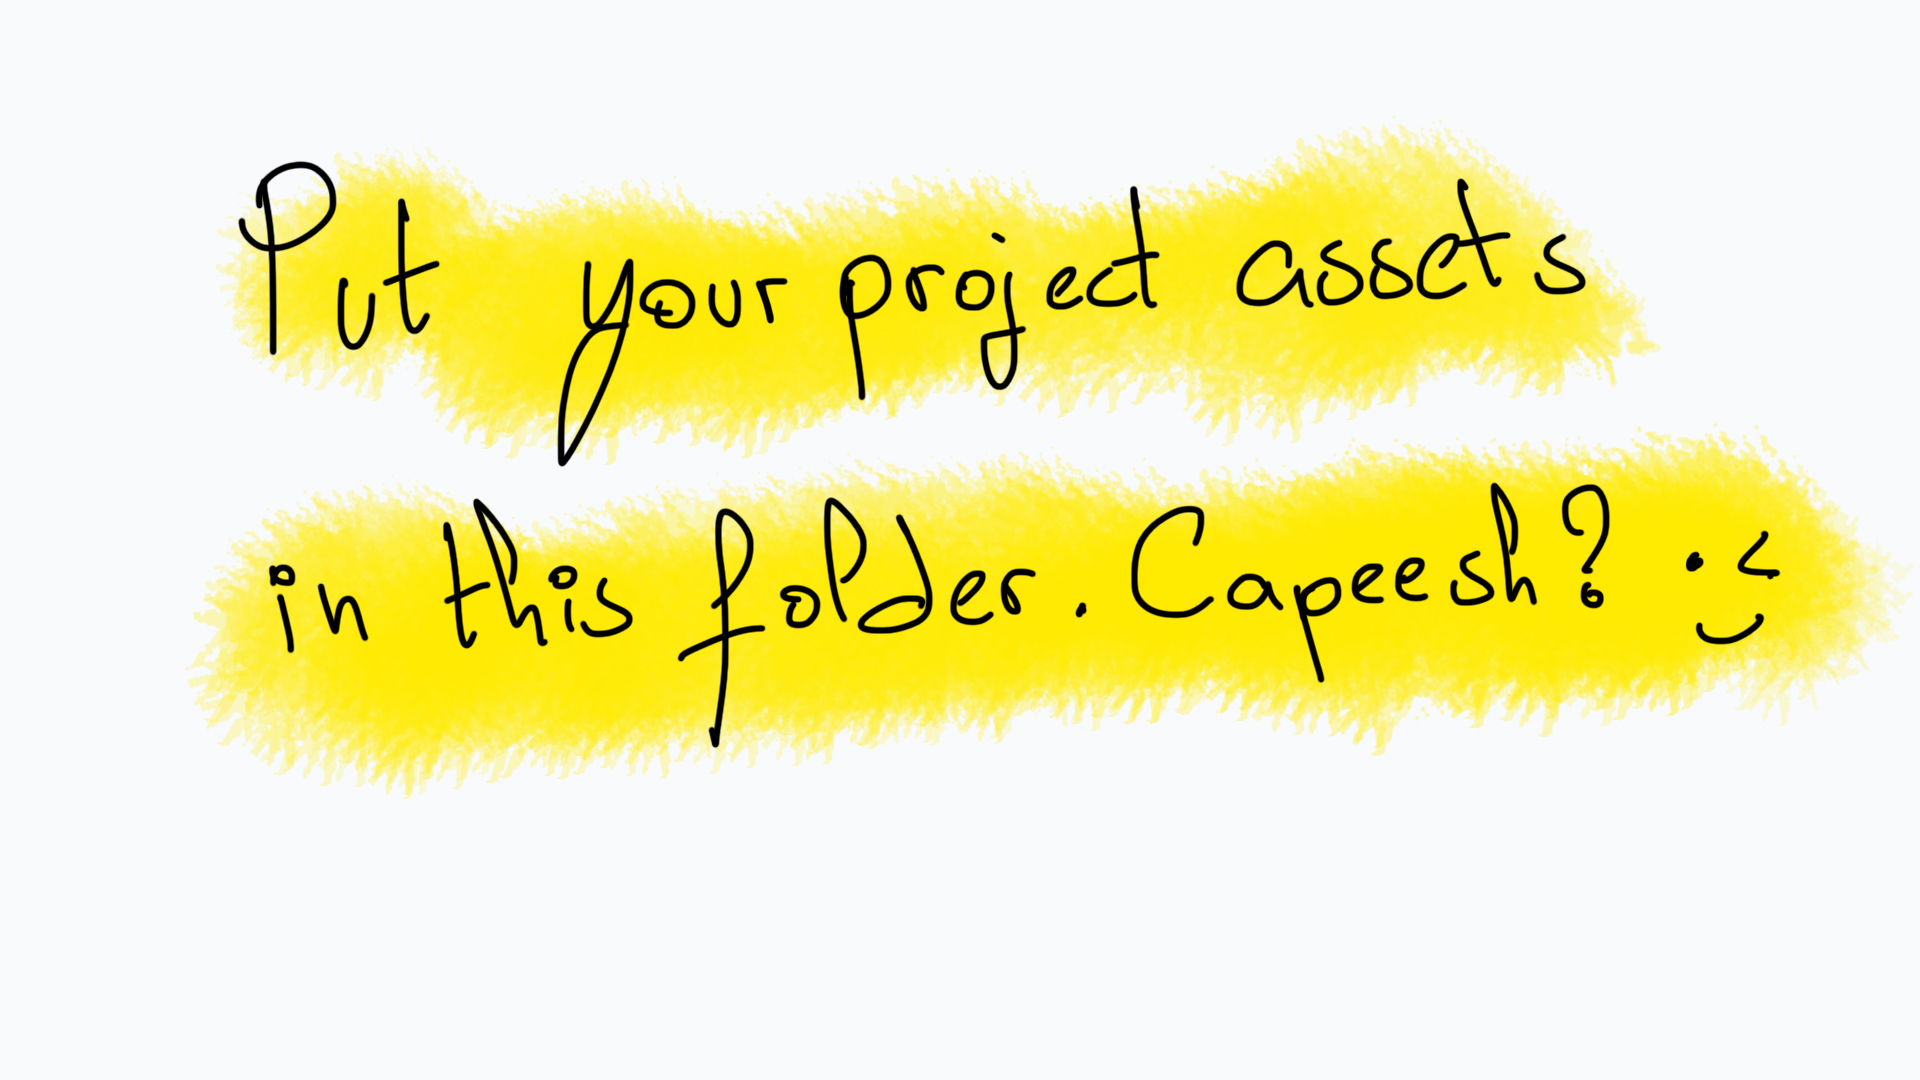 Put your project assets
in this folder. Capeesh?